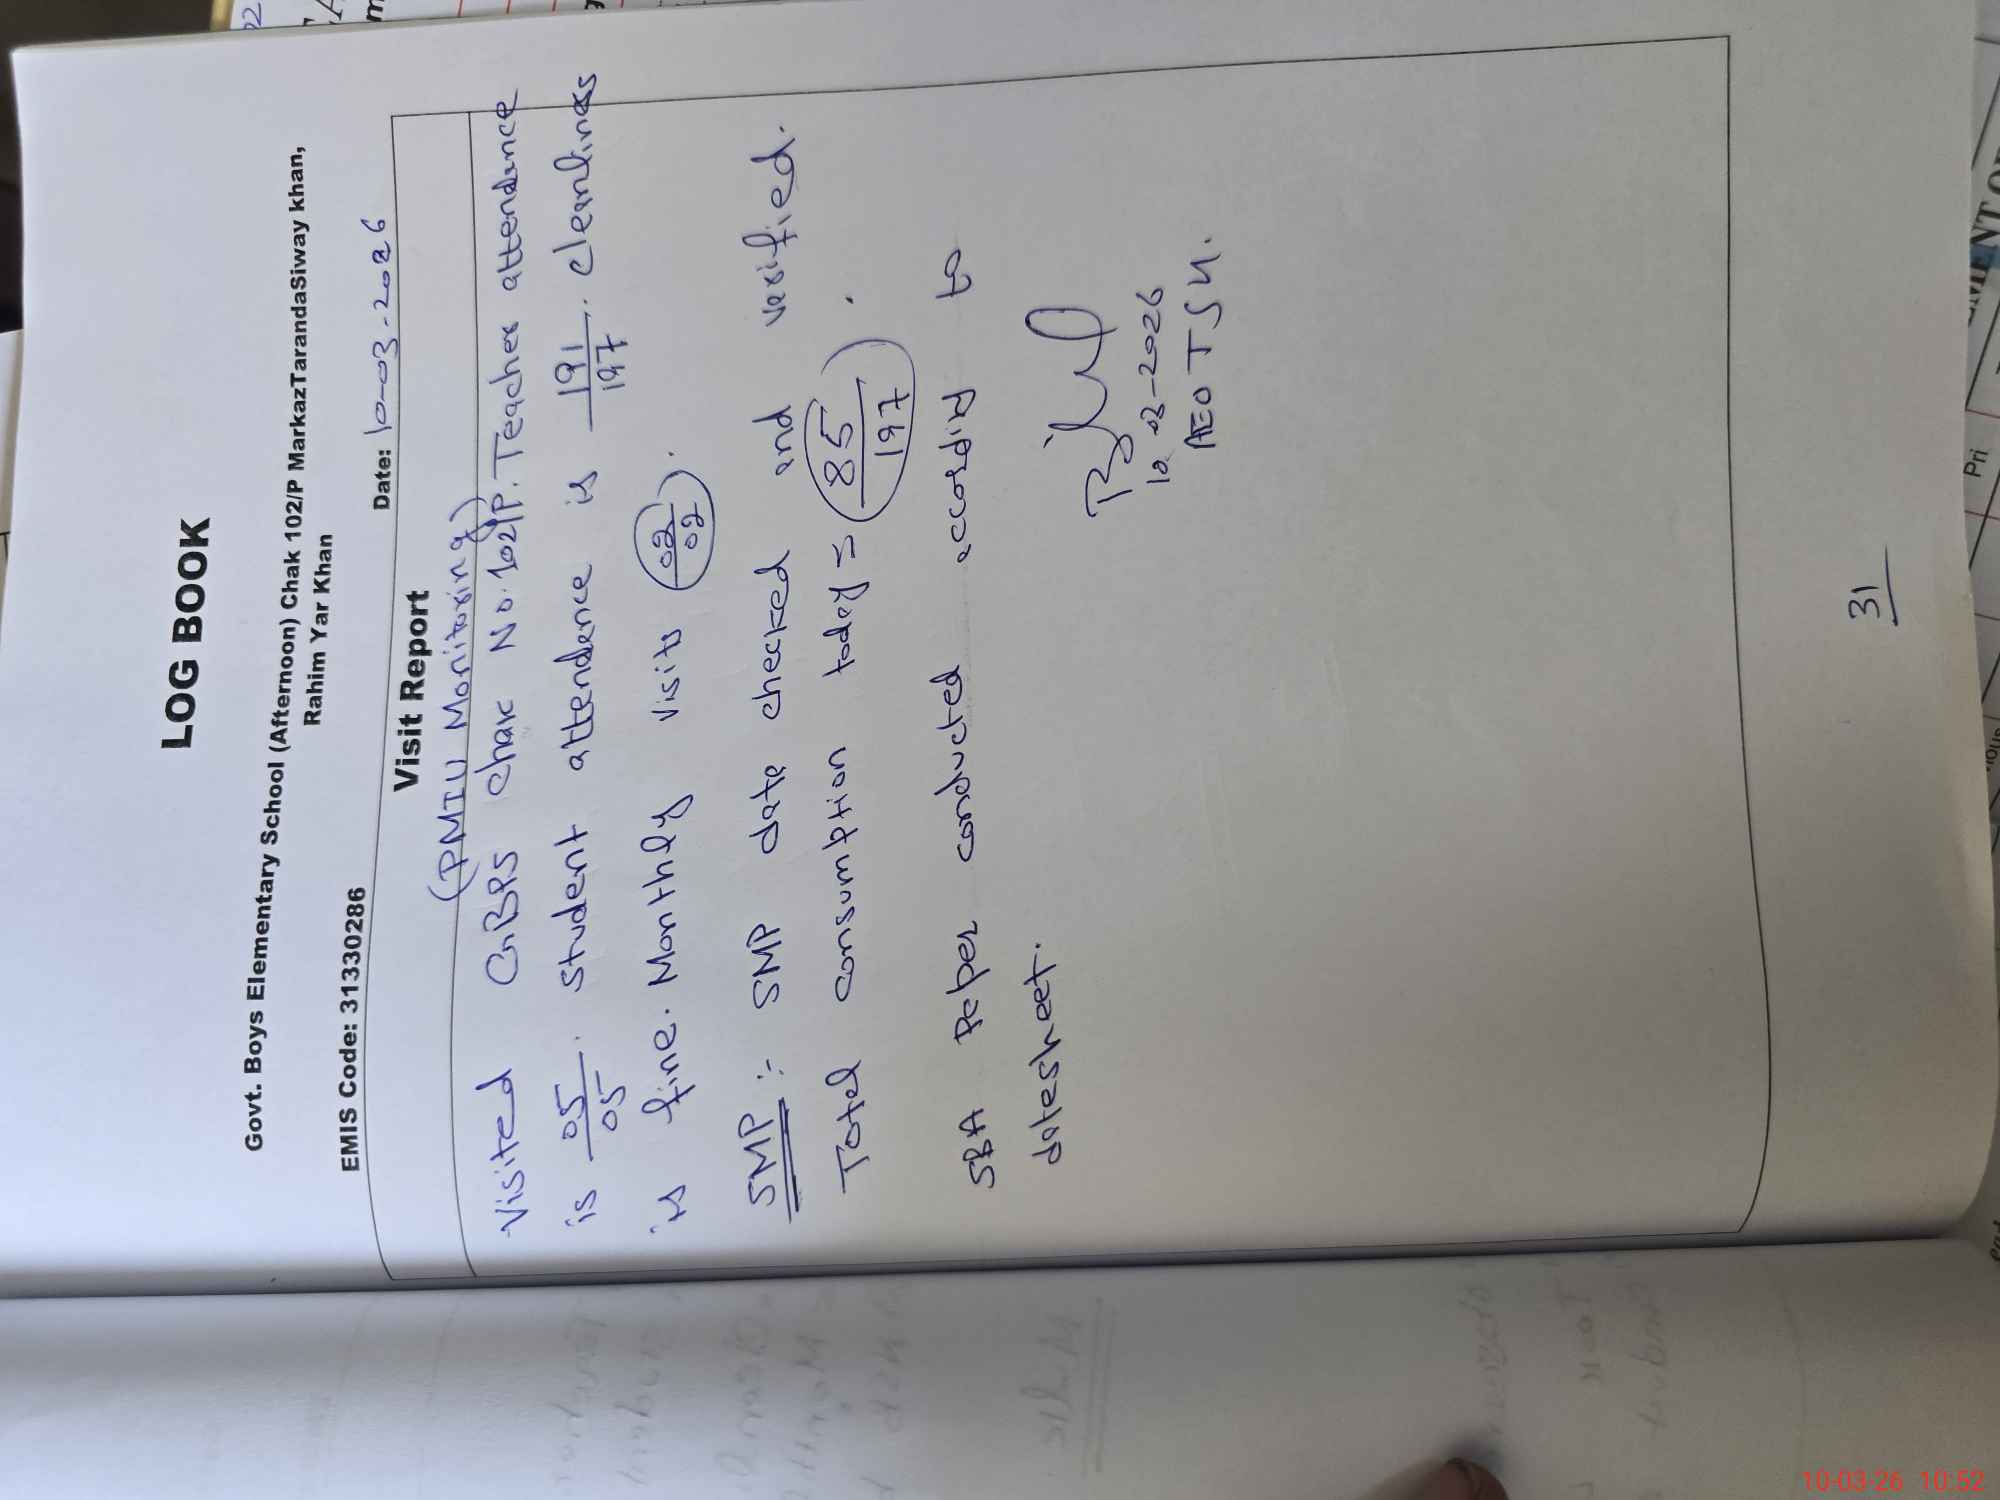 LOG BOOK
Govt. Boys Elementary School (Afternoon) Chak 102/P MarkazTarandaSiway khan,
Rahim Yar Khan
EMIS Code: 31330286 Date: 10-03-2026
Visit Report
(PMIU Monitoring)
Visited GBPS Chak No.102/P. Teacher attendence
is 05/05. Student attendence is 191/197. cleanliness
is fine. Monthly visits 02/02.
SMP :- SMP date checked and verified.
Total consumption today = 85/197.
SBA Paper conducted according to
datesheet.
10-03-2026
AEO TSK.
31
10-03-26 10:52